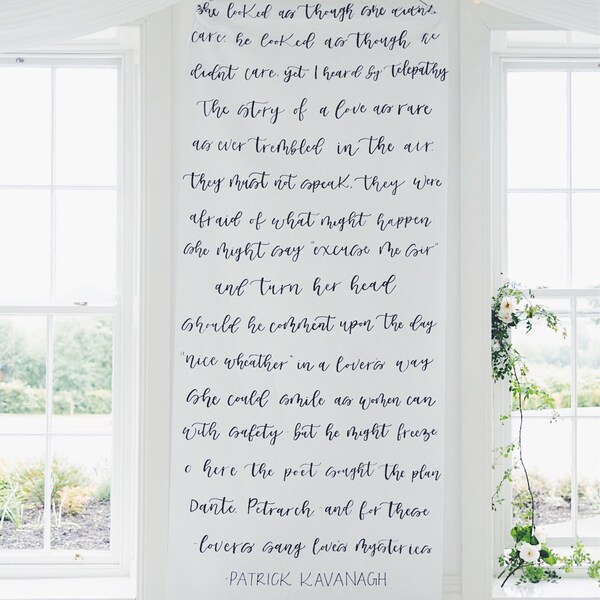 she looked as though she didn't
care. he looked as though he
didnt care. yet I heard by telepathy
the story of a love as rare
as ever trembled in the air.
they must not speak. they were
afraid of what might happen
she might say "excuse me sir"
and turn her head
should he comment upon the day
"nice wheather" in a lovers way
she could smile as women can
with safety but he might freeze
o here the poet sought the plan
Dante. Petrarch and for these
lovers sang loves mysteries
-PATRICK KAVANAGH